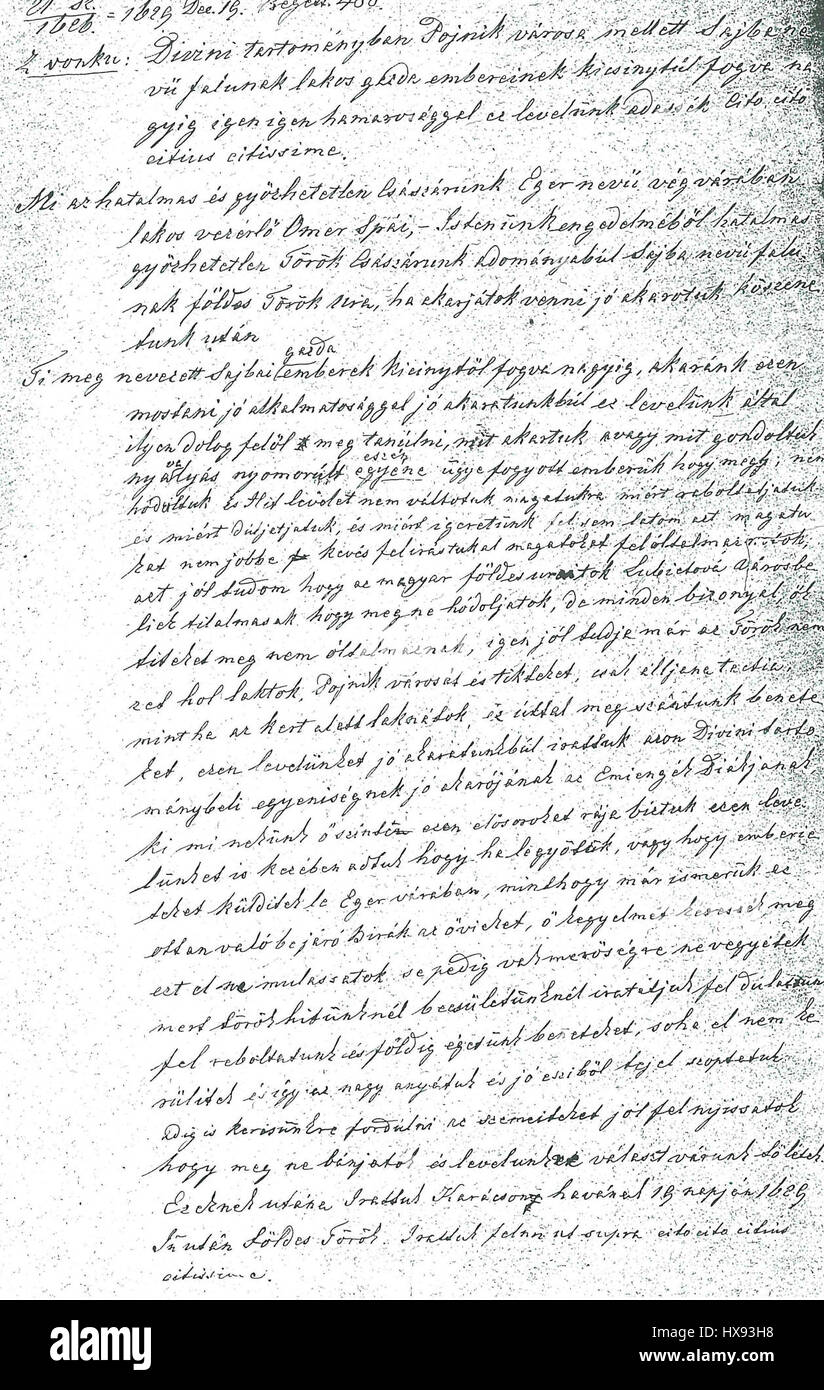 1626 = 1629 Dec. 19.
Z vonku: Divini tartományban Pojnik városa mellett Sajba ne
vü falunak lakos gazda embereinek kicsinytül fogva na
gyig igen igen hamarosággal ez levelünk adassék Cito cito
citius citissime.
Mi az hatalmas és gyözhetetlen Császárunk Eger nevü vég várában
lakos vezérlö Omer Spái, – Istenünk engedelméböl hatalmas
gyözhetetlen Török Császárunk adományábúl Sajba nevü falu
nak földes Török Ura, ha akarjátok venni jó akarotuk köszöne
tunk után
gazda
Ti meg nevezett Sajbai emberek kicinytöl fogva nagyig, akaránk ezen
mostani jó alkalmatosággal jó akaratunkbúl ez levelünk által
ilyen dolog felöl meg tanúlni, mit akartuk avagy mit gondoltuk
nyavalyás nyomorúlt ügye fogyott emberük hogy megh nem
hódoltuk és Hit levelet nem váltotuk magatukra miért raboltatjatuk
és miért dúljetjatuk, és miért igeretünk fel sem latom azt magatu
kat nem jobbe kevés felirástukal magatokat
azt jól tudom hogy az magyar földes uratok Lubietová Városbe
liek tilalmasak hogy meg ne hódoljatok, de minden bizonyal ök
titeket meg nem óltalmaznak, igen jól tudja már az Török nem
zet hol laktok, Pojnik városát és tikteket, csak
mintha az kert alatt laknátok, ez úttal meg szántunk benete
ket, ezen levelünket jó akaratunkbúl irattuk azon Divini tarto
mánybeli egyeniségnek jó akarójának az Diákjanak,
ki mi nekünk öszintén ezen elösoroket rája biztuk ezen leve
lünket is kezében adtuk hogy ha legyötök, vagy hogy embere
teket külditek le Eger várában, minthogy már ismerük ez
ottan való bejáró Birák az övieket, ö kegyelmét keressék meg
ezt el ne mulassatok se pedig vakmeröségre ne vegyétek
mert török hitünknél becsületünknél iratatjuk fel dúlattunk
fel raboltatunk és földig égetünk beneteket, soha el nem ke
rülitek és igy az nagy anyátuk és jó tejel szoptatuk
adig is kezünkre fordúlni az szemeiteket jol fel nyissatok
hogy meg ne bánjatok és levelunkre valaszt várunk tölétek
Ezeknek utána Irattuk Karácsony havának 19 napján 1629
In után földes Török. Irattuk ut supra cito cito citius
citissime.
alamy
Image ID: HX93H8
www.alamy.com